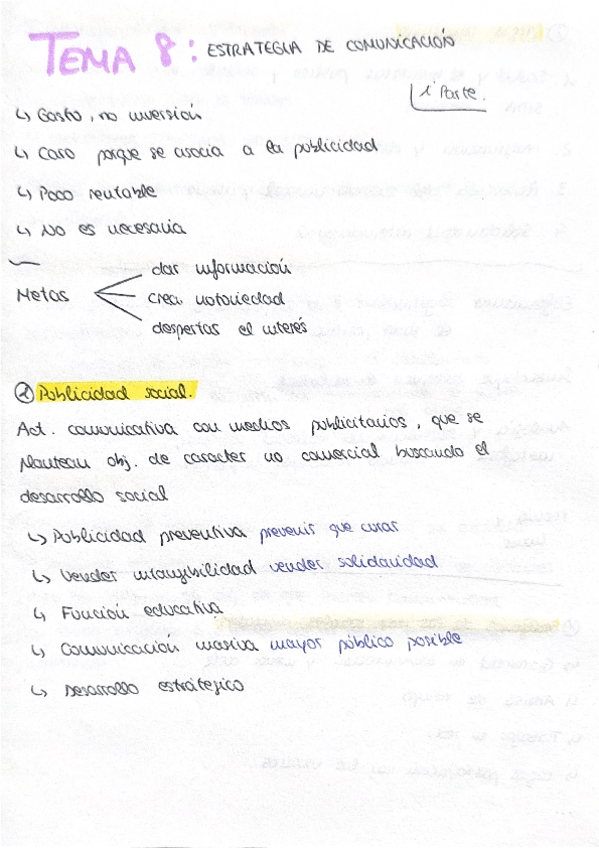 TEMA 8: ESTRATEGIA DE COMUNICACIÓN
1ª Parte.
↳ Gasto, no inversión
↳ Caro porque se asocia a la publicidad
↳ Poco rentable
↳ No es necesaria
Metas
dar información
crear notoriedad
despertas el interés
② Publicidad social.
Act. comunicativa con medios publicitarios, que se
plantean obj. de caracter no comercial buscando el
desarrollo social
↳ Publicidad preventiva prevenir que curar
↳ Vender intangibilidad vender solidaridad
↳ Función educativa
↳ Comunicación masiva mayor público posible
↳ Desarrollo estratégico